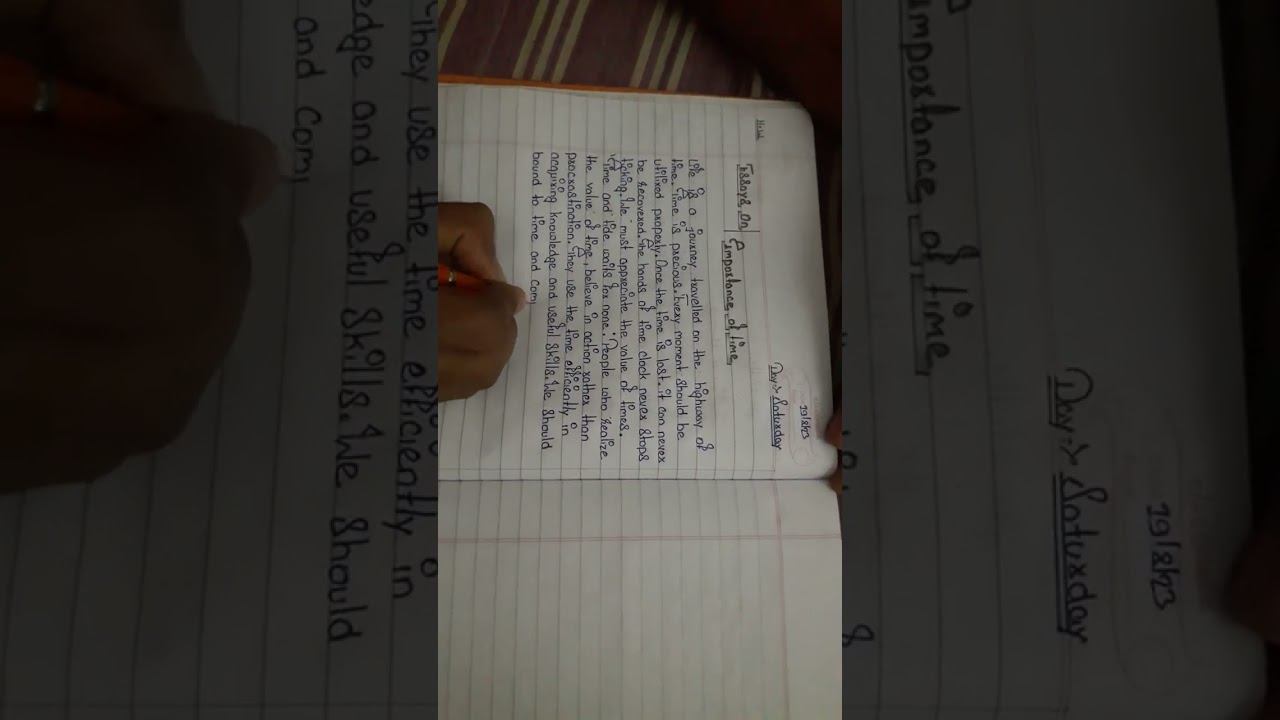 19/8/23
Day:- Saturday
Essays on importance of time,
Life is a journey travelled on the highway of
time. Time is precious. Every moment should be
utilized properly. Once the time is lost. it can never
be recovered. The hands of time clock never stops
ticking. We must appreciate the value of times.
"Time and tide waits for none." People who realize
the value of time, believe in action rather than
procrastination. They use the time efficiently in
acquiring knowledge and useful skills. We should
bound to time and com